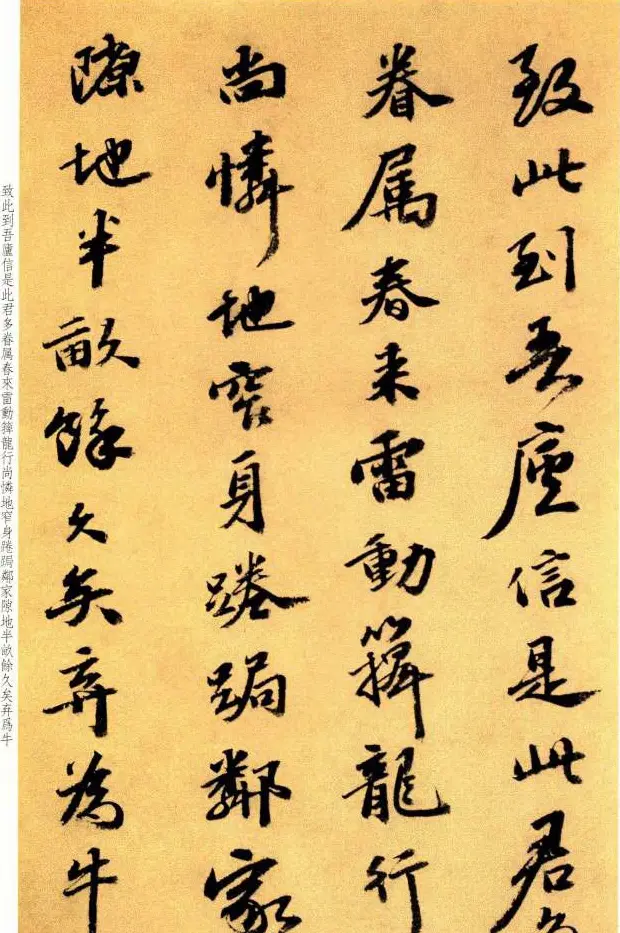 致此到吾廬信是此君多
眷属春来雷動籜龍行
尚憐地窄身踡跼鄰家
隙地半畝餘久矣弃為牛
致此到吾廬信是此君多眷属春來雷動籜龍行尚憐地窄身踡跼鄰家隙地半畝餘久矣弃爲牛